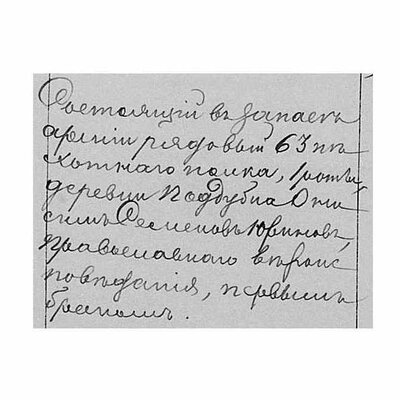 Состоящій въ запасѣ
арміи рядовый 63 пѣ
хотнаго полка,
деревни Поддубна Они
симъ Семеновъ Юриновъ,
православнаго вѣроис
повѣданія, первымъ
бракомъ.